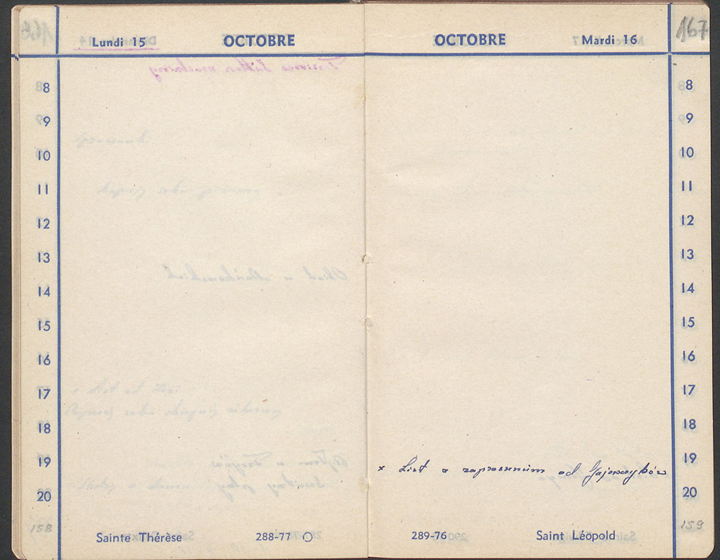 Lundi 15 OCTOBRE
8
9
10
11
12
13
14
15
16
17
18
19
20
158
Sainte Thérèse 288-77
OCTOBRE Mardi 16
167
8
9
10
11
12
13
14
15
16
17
18
19
20
x List z zaproszeniem od
159
289-76 Saint Léopold